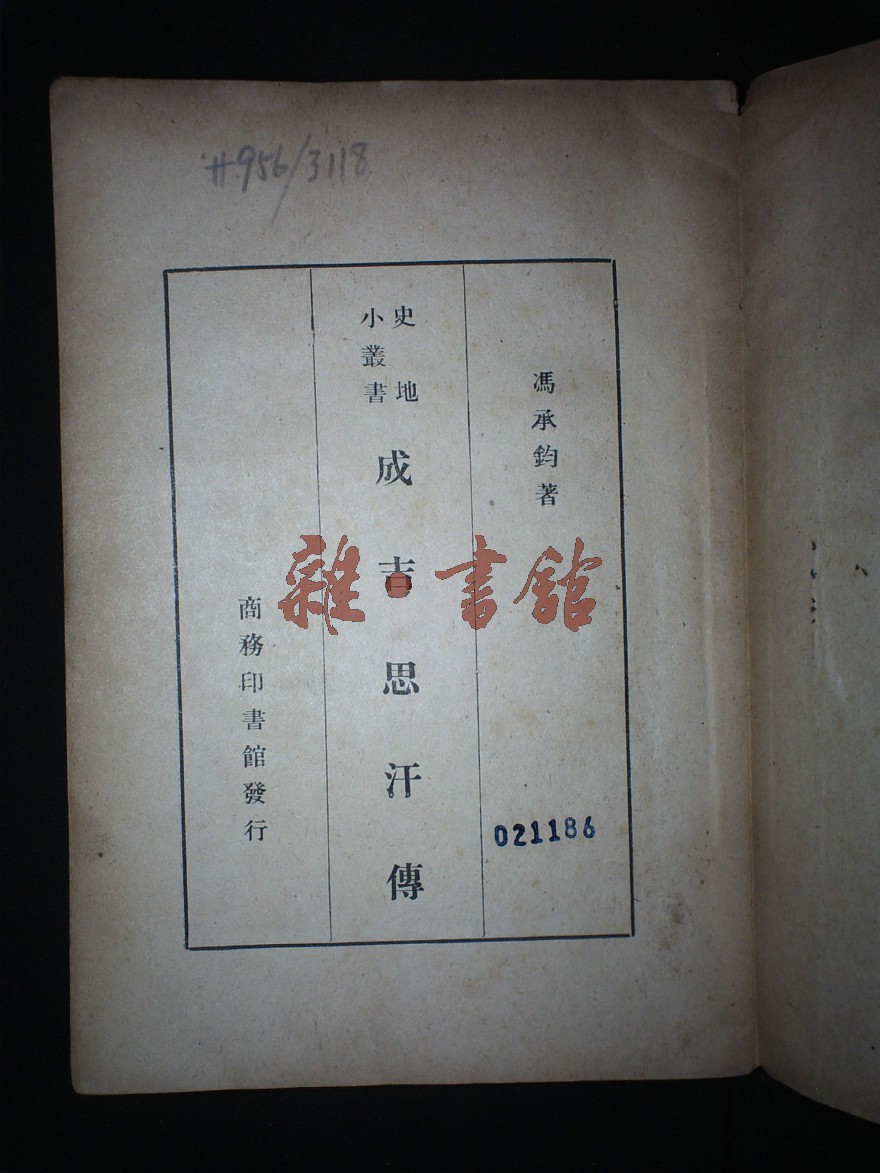 #956/3118
馮承鈞著
史地
小叢書
成吉思汗傳
商務印書館發行
雜·書館
021186